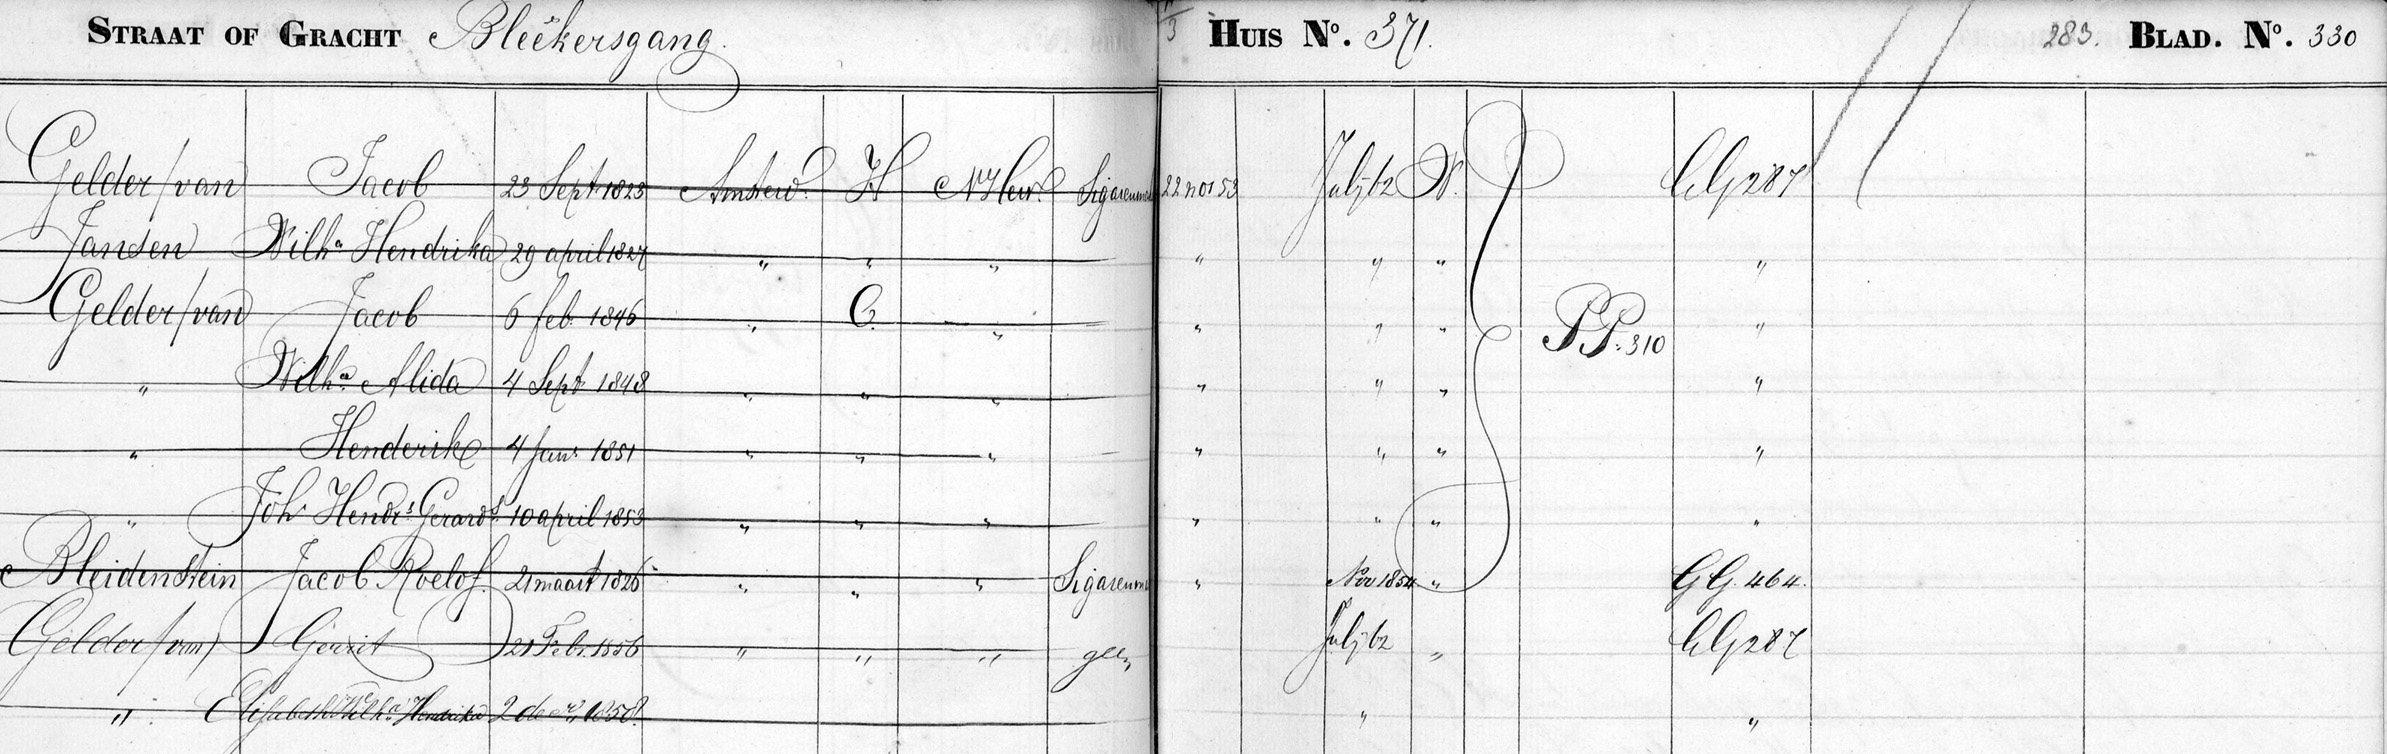 STRAAT OF GRACHT Bleekersgang. 3 HUIS No. 371. 283. BLAD. No. 330
Gelder / van Jacob 23 Sept 1823 Amsterd. H NHerv. Sigarenma 22 nov 53 Julj 62 W. GG 287
Jansen Wilha Hendrika 29 april 1827 " " " — " " " "
Gelder / van Jacob 6 feb. 1846 " G. " — " " " PP. 310 "
" Wilha Alida 4 Sept 1848 " " " " " " "
" Henderik 4 Jan. 1851 " " " — " " " "
" Joh. Hends Gerards 10 april 1853 " " " — " " " "
Bleidenstein Jacob Roelof. 21 maart 1826 " " " Sigarenma " Nov 1854 " GG. 464.
Gelder / van) Gerrit 21 Feb. 1856 " " " geen Julj 62 " GG 287
" Elisabeth Wilha Hendrika 2 decr 1858. " "